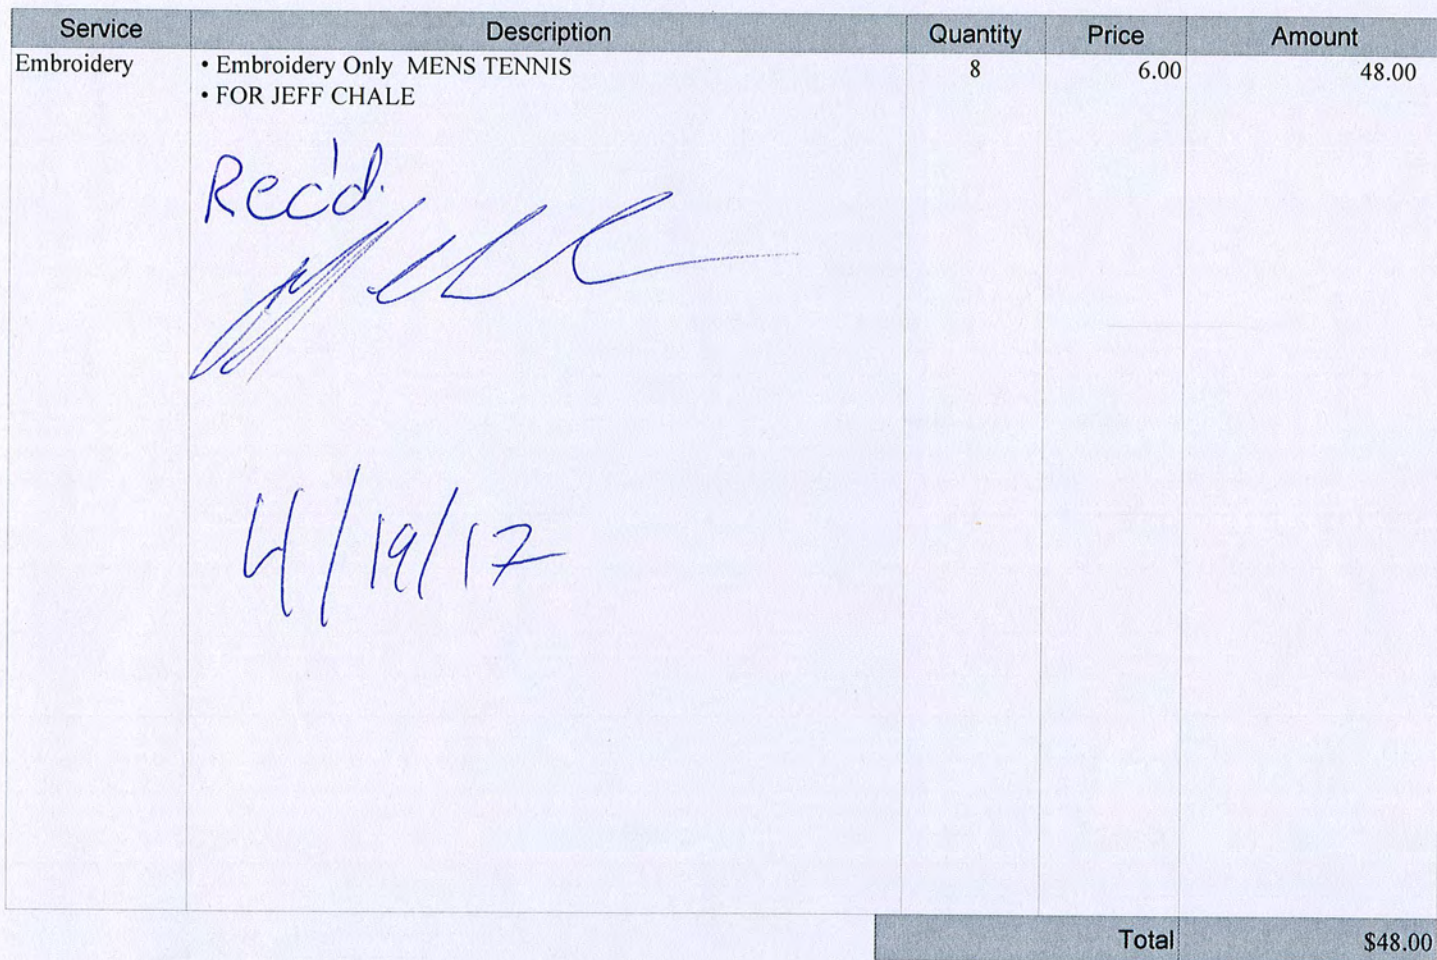 Service Description Quantity Price Amount
Embroidery • Embroidery Only MENS TENNIS 8 6.00 48.00
• FOR JEFF CHALE
Rec'd.
4/19/17
Total $48.00